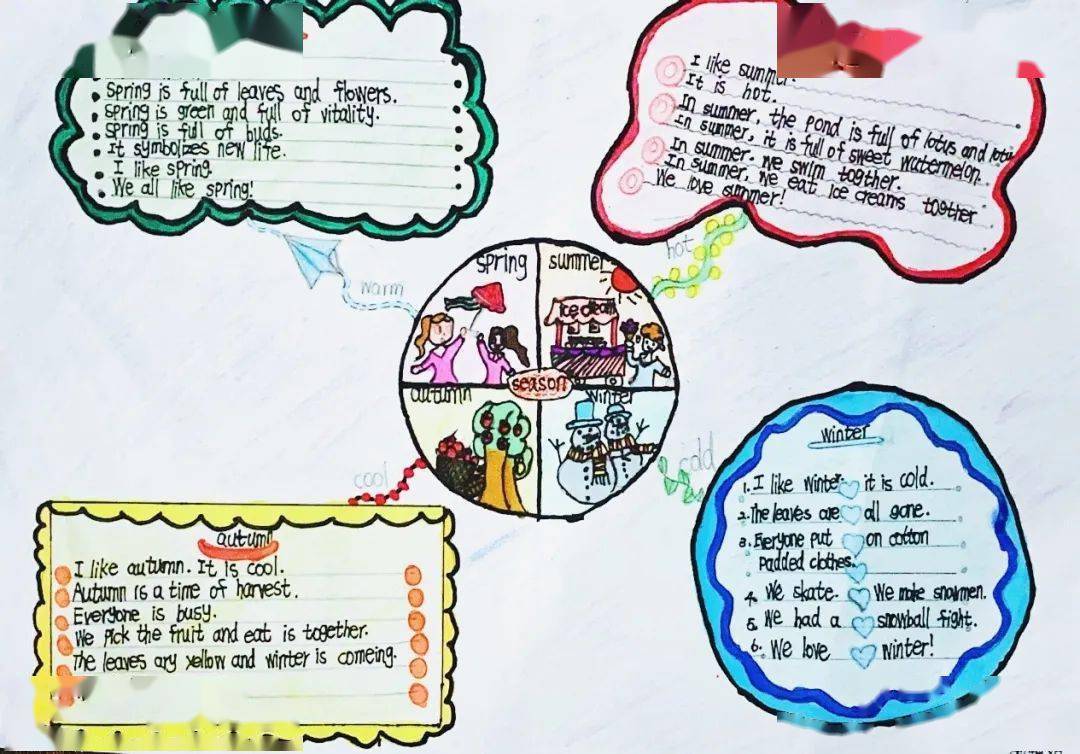 Spring is full of leaves and flowers.
Spring is green and full of vitality.
Spring is full of buds.
It symbolizes new life.
I like spring.
We all like spring!
I like summer.
It is hot.
In summer, the pond is full of lotus and lotus
In summer, it is full of sweet watermelon.
In summer, we swim togther.
In summer, we eat ice creams togther
We love summer!
warm
hot
spring
summer
ice cream
season
autumn
winter
cool
cold
autumn
I like autumn. It is cool.
Autumn is a time of harvest.
Everyone is busy.
We pick the fruit and eat is together.
The leaves ary yellow and winter is comeing.
winter
1. I like winter it is cold.
2. The leaves are all gone.
3. Everyone put on cotton
padded clothes.
4. We skate. We make snowmen.
5. We had a snowball fight.
6. We love winter!